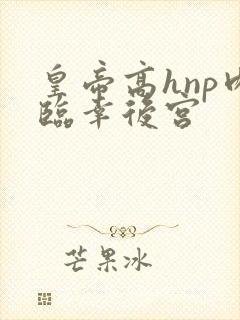 皇帝高hnp
臨幸後宮
芒果冰